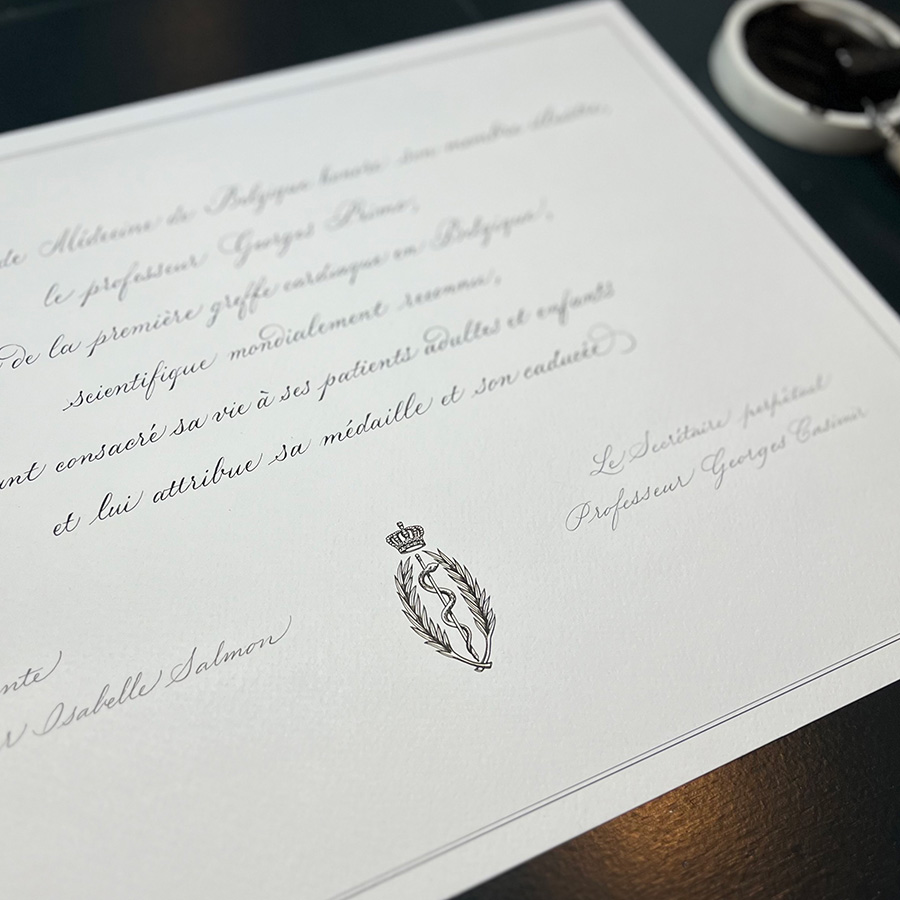 de Médecine de Belgique honore son membre illustre,
le professeur Georges Primo,
de la première greffe cardiaque en Belgique,
scientifique mondialement reconnu,
ant consacré sa vie à ses patients adultes et enfants
et lui attribue sa médaille et son caducée
Le Secrétaire perpétuel
Professeur Georges Casimir
nte
Isabelle Salmon